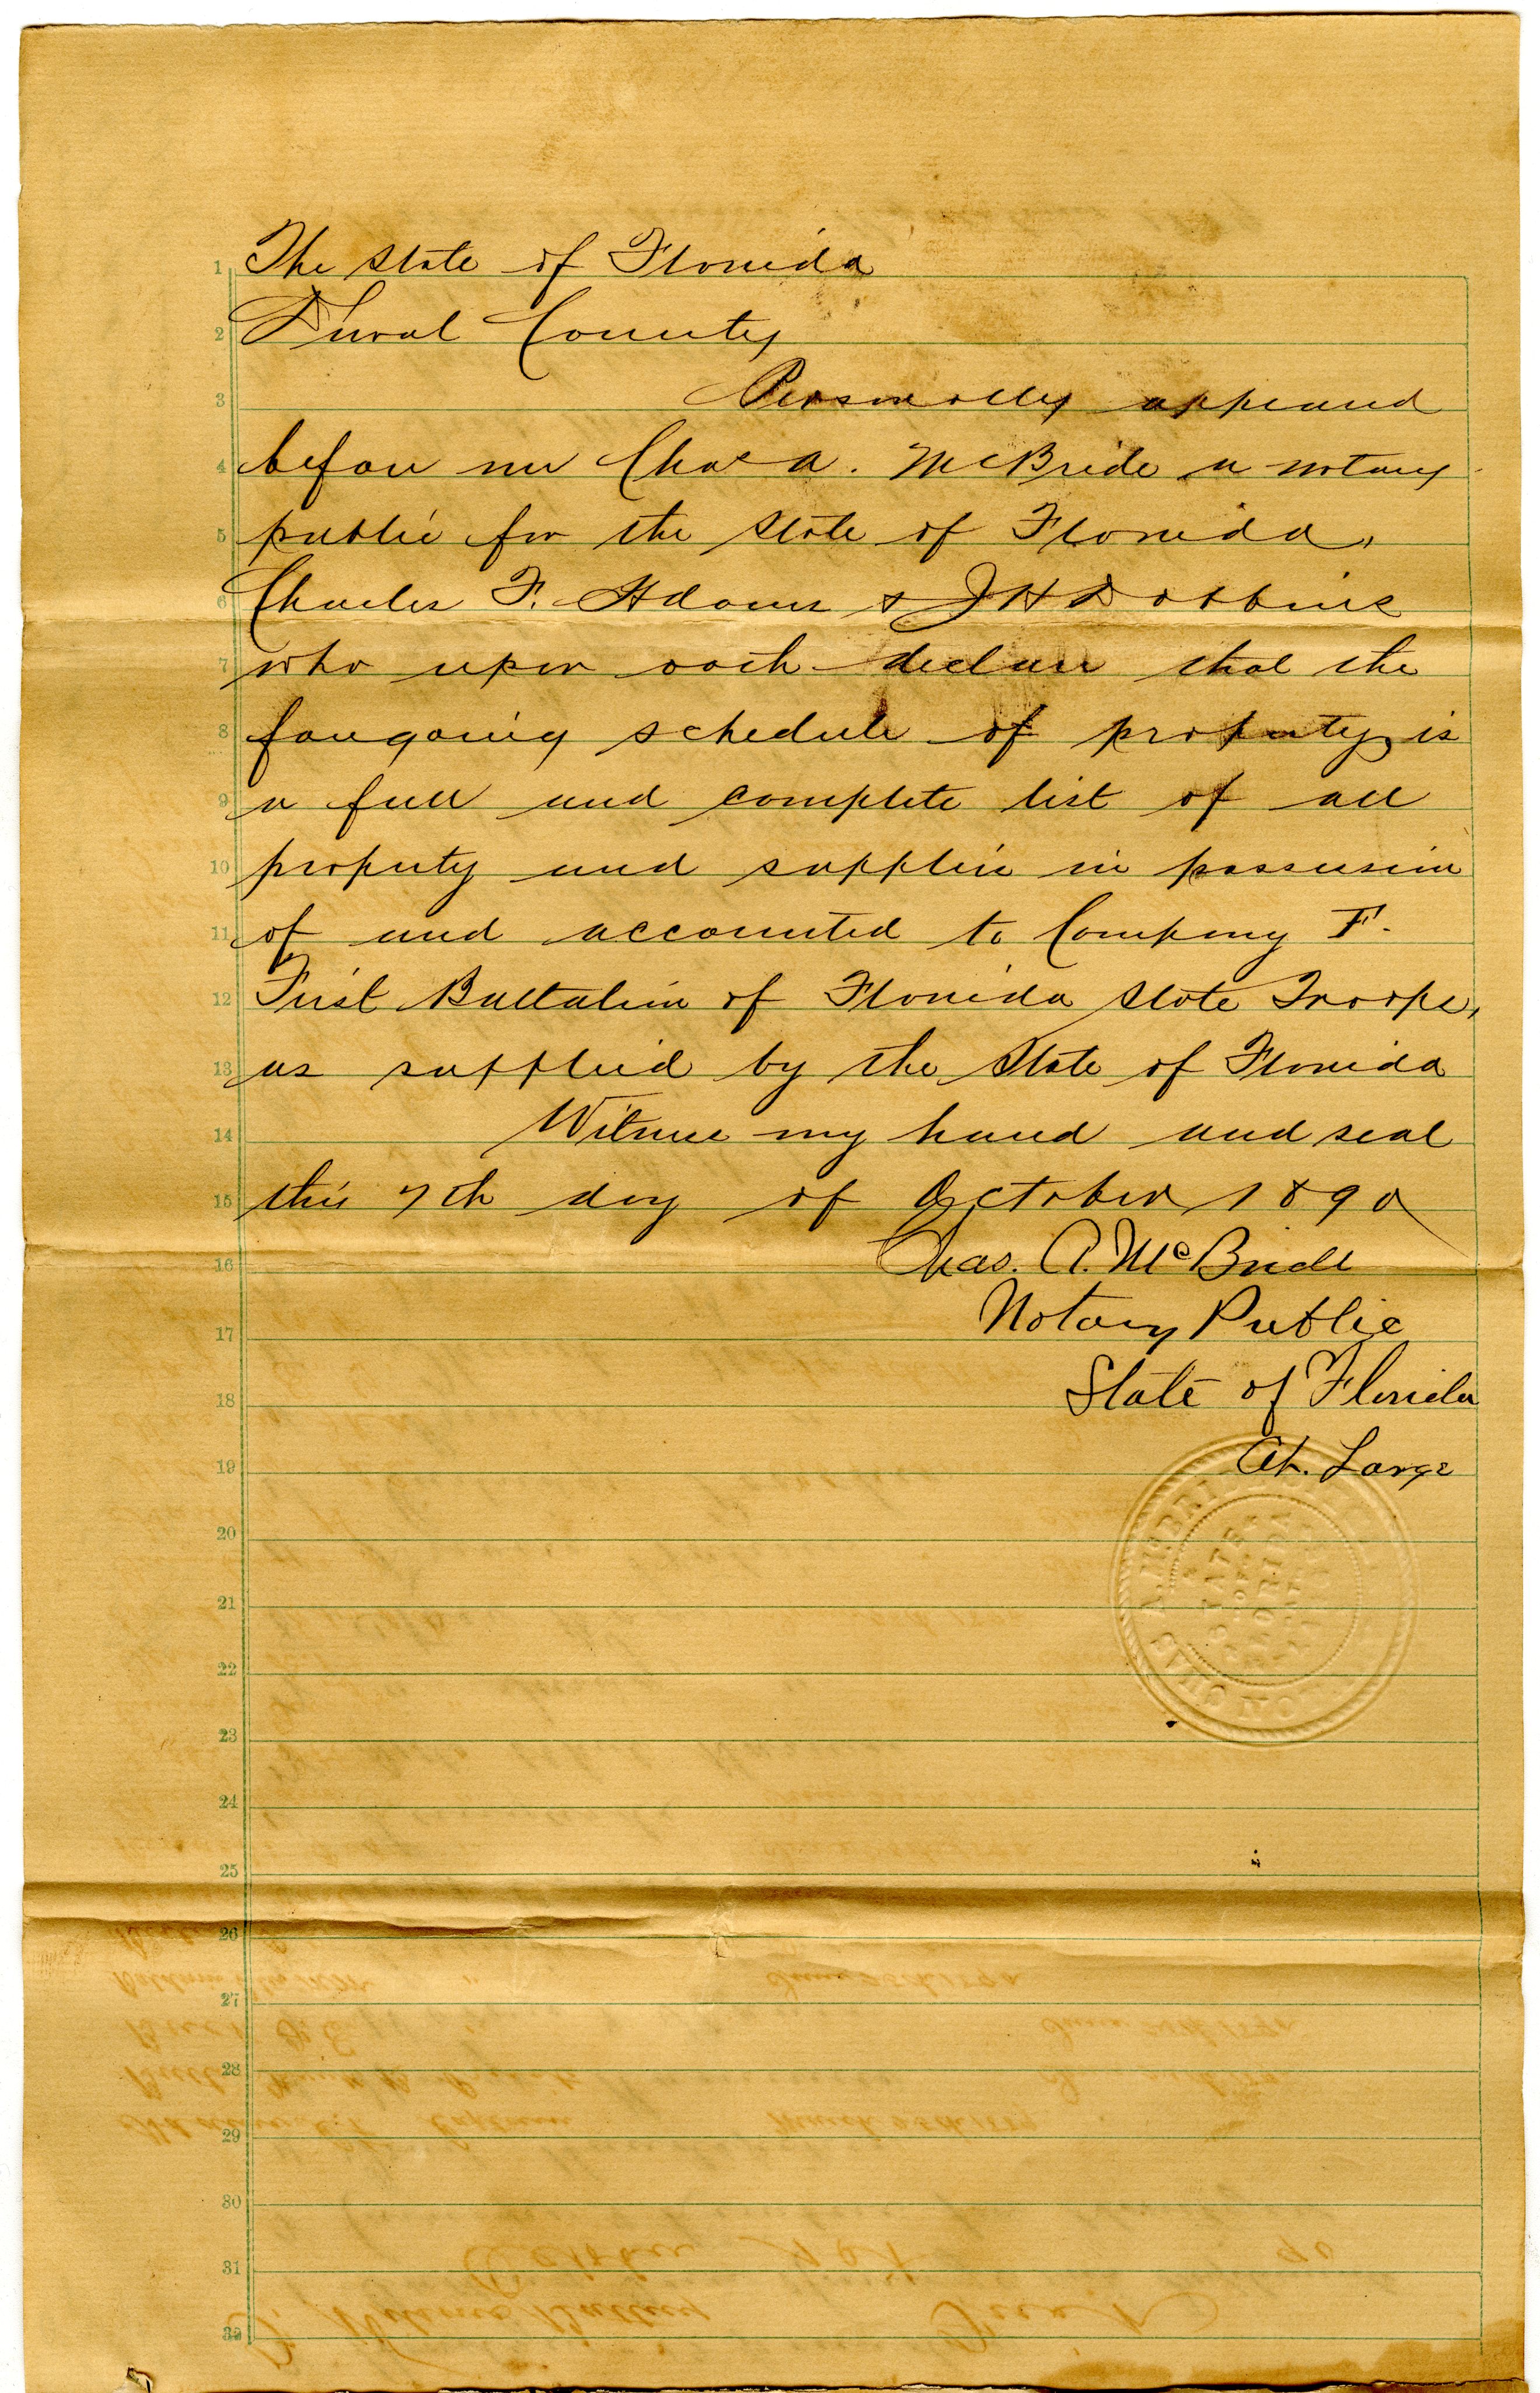 The State of Florida
Duval County
Personally appeared
before me Chas A. McBride a notary
public for the State of Florida,
Charles F. Adams & J H Dobbins
who upon oath declare that the
foregoing schedule of property is
a full and complete list of all
property and supplies in possession
of and accounted to Company F.
First Battalion of Florida State Troops,
as supplied by the State of Florida
Witness my hand and seal
this 7th day of October 1890
Chas. A. McBride
Notary Public
State of Florida
At. Large
1
2
3
4
5
6
7
8
9
10
11
12
13
14
15
16
17
18
19
20
21
22
23
24
25
26
27
28
29
30
31
32
CHAS A. McBRIDE
STATE
OF
FLORIDA
AT
LARGE